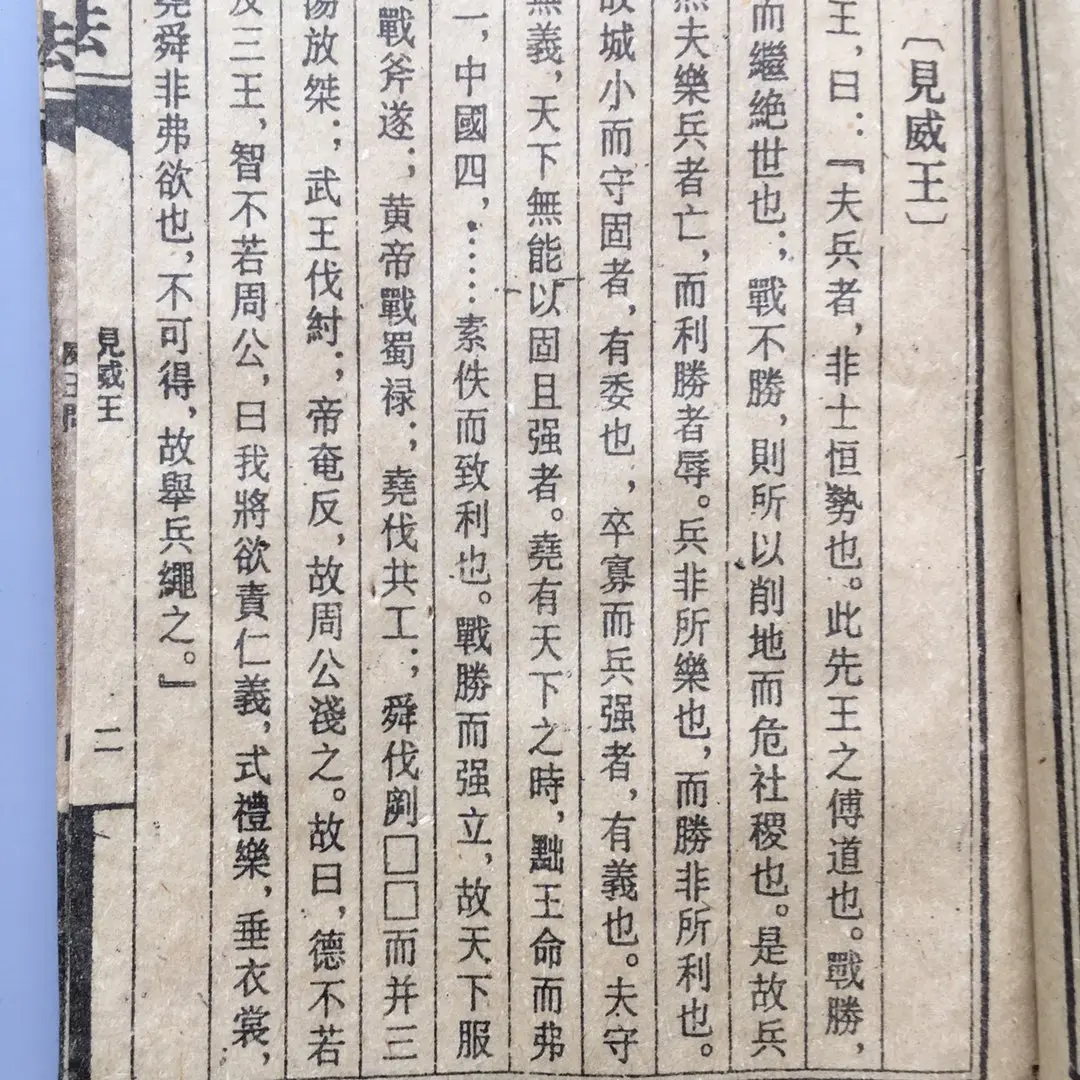 〔見威王〕
王，曰：『夫兵者，非士恒勢也。此先王之傅道也。戰勝，
而繼絶世也；戰不勝，則所以削地而危社稷也。是故兵
夫樂兵者亡，而利勝者辱。兵非所樂也，而勝非所利也。
故城小而守固者，有委也，卒寡而兵强者，有義也。夫守
無義，天下無能以固且强者。堯有天下之時，黜王命而弗
一，中國四，……素佚而致利也。戰勝而强立，故天下服
戰斧遂；黄帝戰蜀禄；堯伐共工；舜伐劀□□而并三
湯放桀；武王伐紂；帝奄反，故周公淺之。故曰，德不若
三王，智不若周公，曰我將欲責仁義，式禮樂，垂衣裳，
堯舜非弗欲也，不可得，故舉兵繩之。』
見威王
二
法